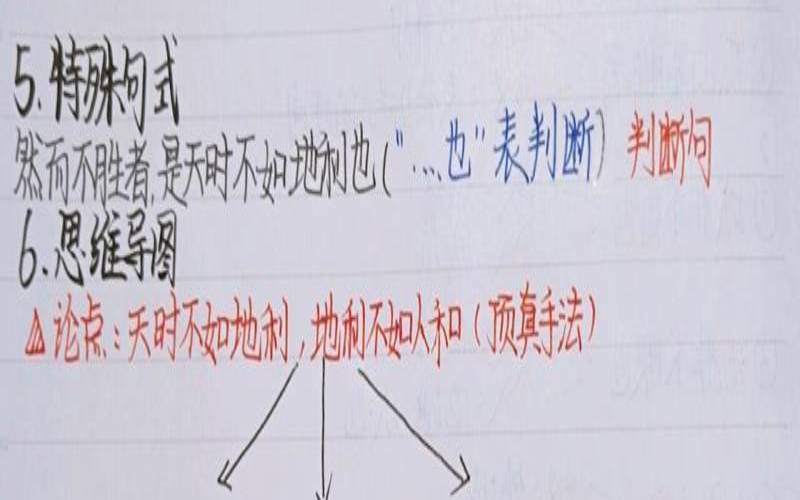 5.特殊句式
然而不胜者,是天时不如地利也("...也"表判断) 判断句
6.思维导图
△论点:天时不如地利,地利不如人和(顶真手法)